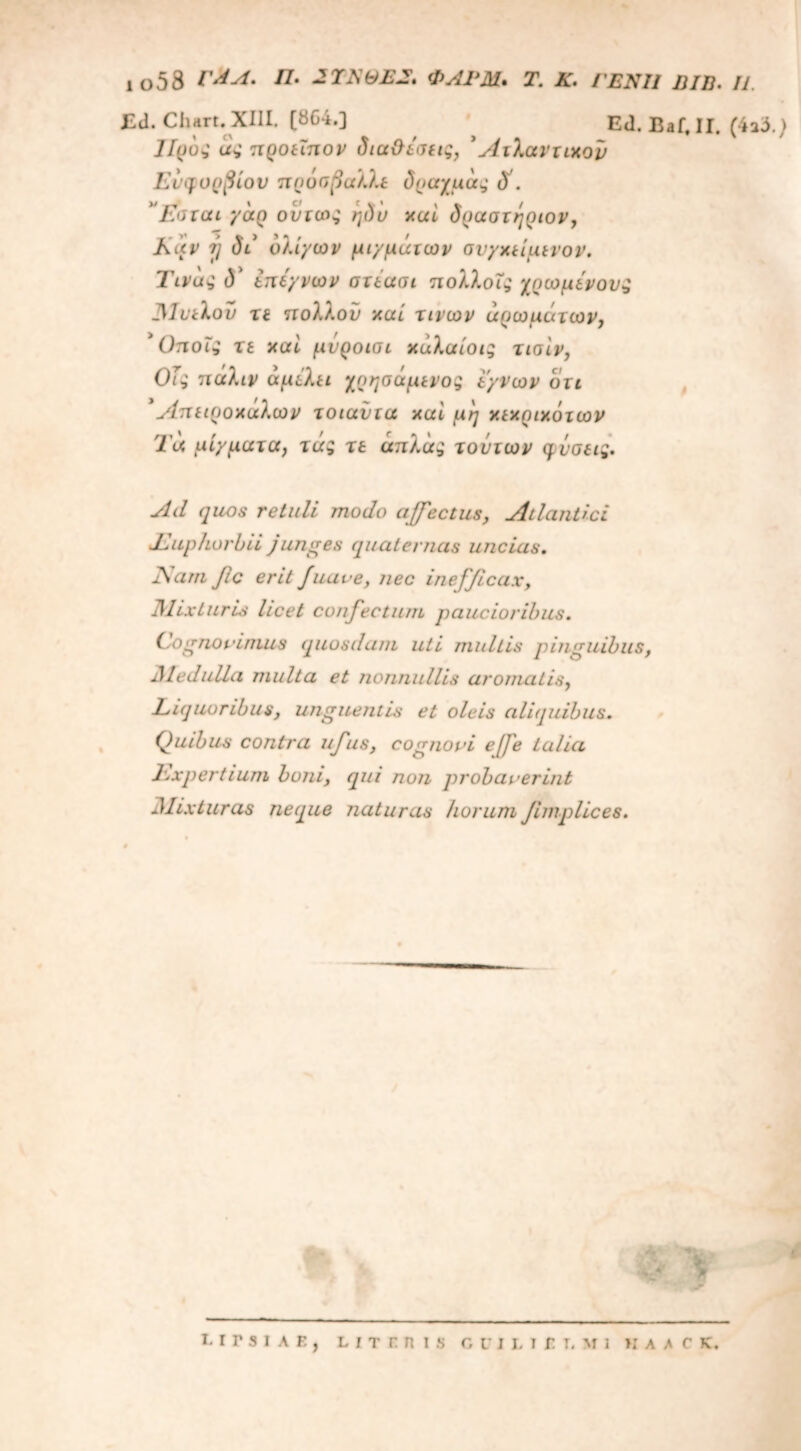 1058 ΓΑΛ. Π. ΣΥΝΘΕΣ. ΦΑΡΜ. Τ. Κ. ΓΕΝΗ ΒΙΒ. II.
Ed. Chart. XIII. [864.] Ed. Baſ. II. (423.)
Πρὸς ἃς προεῖπον διαθέσεις, Ἀτλαντικοῦ
Εὐφορβίου πρόσβαλλε δραχμὰς δʹ.
Ἔσται γὰρ οὕτως ἡδὺ καὶ δραστήριον,
Κᾂν ᾖ δι’ ὀλίγων μιγμάτων συγκείμενον.
Τινὰς δ’ ἐπέγνων στέασι πολλοῖς χρωμένους
Μυελοῦ τε πολλοῦ καί τινων ἀρωμάτων,
Ὀποῖς τε καὶ μύροισι κἀλαίοις τισὶν,
Οἷς πάλιν ἀμέλει χρησάμενος ἔγνων ὅτι
Ἀπειροκάλων τοιαῦτα καὶ μὴ κεκρικότων
Τὰ μίγματα, τάς τε ἁπλὰς τούτων φύσεις.
Ad quos retuli modo affectus, Atlantici
Euphorbii junges quaternas uncias.
Nam ſic erit ſuave, nec inefficax,
Mixturis licet confectum paucioribus.
Cognovimus quosdam uti multis pinguibus,
Medulla multa et nonnullis aromatis,
Liquoribus, unguentis et oleis aliquibus.
Quibus contra uſus, cognovi eſſe talia
Expertium boni, qui non probaverint
Mixturas neque naturas horum ſimplices.
LIPSIAE, LITERIS GUILIELMI HAACK.